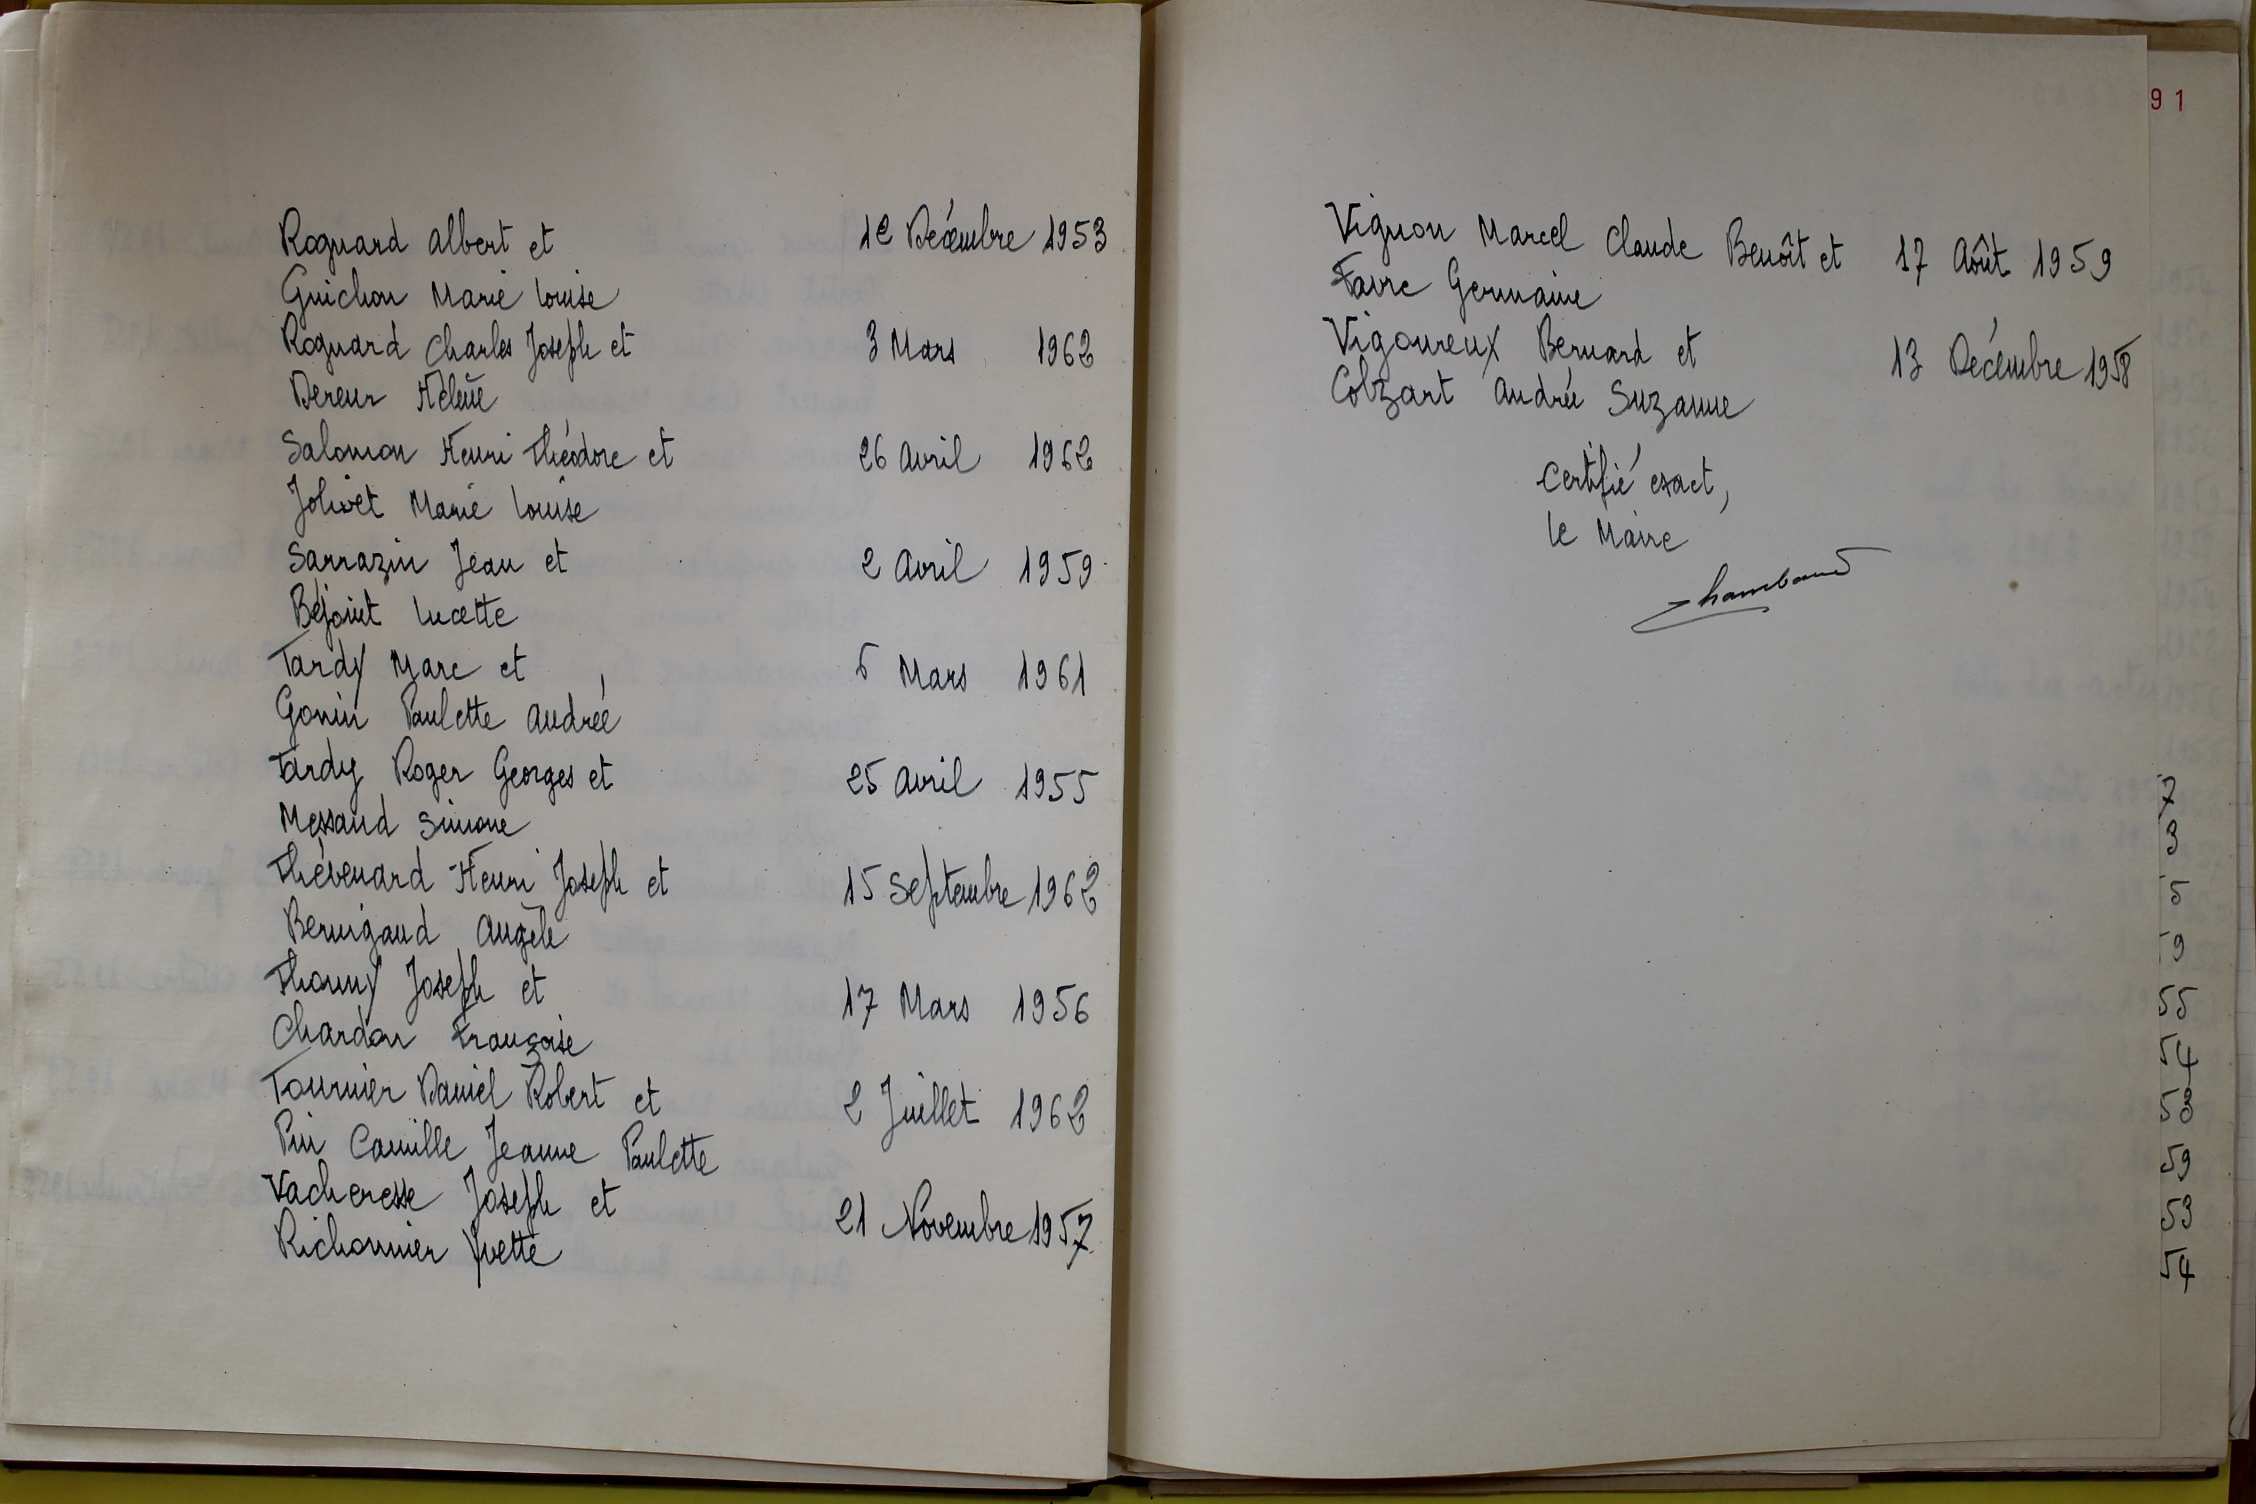 Roguard Albert et 12 Décembre 1953
Guichon Marie Louise
Roguard Charles Joseph et 3 Mars 1962
Dereur Hélène
Salomon Henri Théodore et 26 Avril 1962
Jolivet Marie Louise
Sarrazin Jean et 2 Avril 1959
Béjoint Lucette
Tardy Marc et 6 Mars 1961
Gonin Paulette Andrée
Tardy Roger Georges et 25 Avril 1955
Messaud Simone
Thévenard Henri Joseph et 15 Septembre 1962
Bernigaud Angèle
Thomy Joseph et 17 Mars 1956
Chardon Françoise
Tournier Daniel Robert et 2 Juillet 1962
Pin Camille Jeanne Paulette
Vacheresse Joseph et 21 Novembre 1957
Richonnier Yvette
91
Vignon Marcel Claude Benoît et 17 Août 1959
Favre Germaine
Vigoureux Bernard et 13 Décembre 1958
Colzart Andrée Suzanne
Certifié exact,
le Maire
7
3
5
9
55
54
53
59
53
54